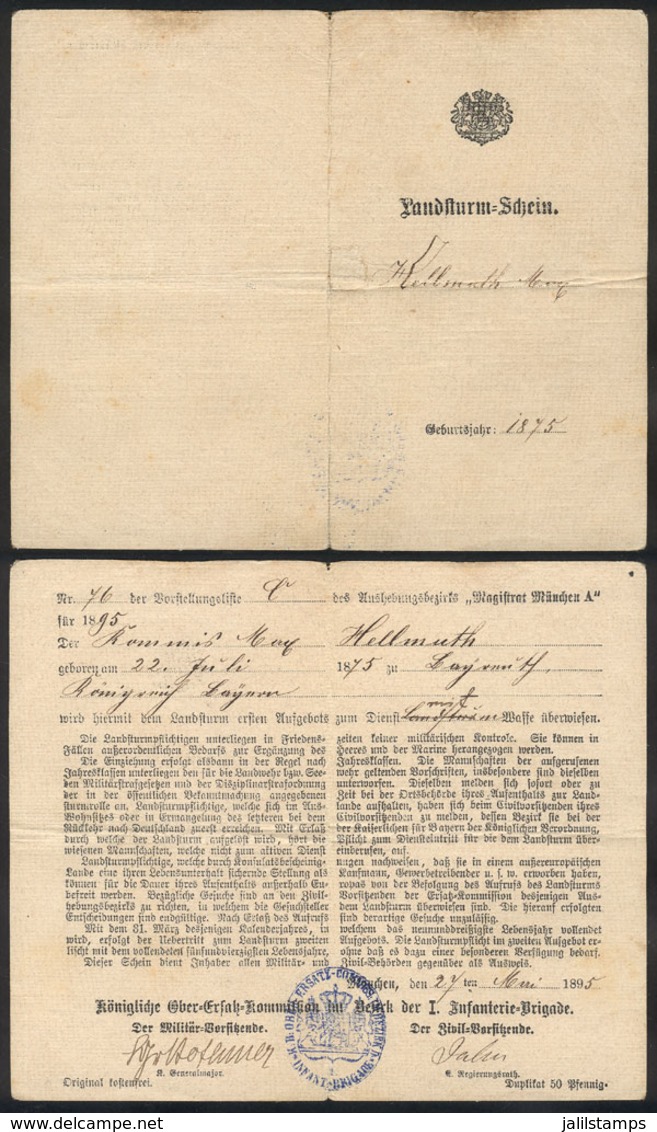 Landsturm=Schein.
Hellmuth Max
Geburtsjahr: 1875
Nr. 76 der Vorstellungsliste C des Aushebungsbezirks „Magistrat München A“
für 1895
Der Kommis Max Hellmuth
geboren am 22. Juli 1875 zu Bayreuth,
Königreich Bayern
wird hiermit dem Landsturm ersten Aufgebots zum Dienst mit Waffe überwiesen.
Die Landsturmpflichtigen unterliegen in Friedenszeiten keiner militärischen Kontrole. Sie können in
Fällen außerordentlichen Bedarfs zur Ergänzung des Heeres und der Marine herangezogen werden.
Die Einziehung erfolgt alsdann in der Regel nach Jahresklassen. Die Mannschaften der aufgerufenen
Jahresklassen unterliegen den für die Landwehr bzw. Seewehr geltenden Vorschriften, insbesondere sind dieselben
den Militärstrafgesetzen und der Disziplinarstrafordnung unterworfen. Dieselben melden sich sofort oder zu
der in der öffentlichen Bekanntmachung angegebenen Zeit bei der Ortsbehörde ihres Aufenthalts zur Land-
sturmrolle an. Landsturmpflichtige, welche sich im Aus-lande aufhalten, haben sich beim Civilvorsitzenden ihres
Wohnsitzes oder in Ermangelung des letzteren bei dem Civilvorsitzenden zu melden, dessen Bezirk sie bei der
Rückkehr nach Deutschland zuerst erreichen. Mit Erlaß der Kaiserlichen für Bayern der Königlichen Verordnung,
durch welche der Landsturm aufgelöst wird, hört die Pflicht zum Diensteintritt für die dem Landsturm über-
wiesenen Mannschaften, welche nicht zum aktiven Dienst einberufen, auf.
Landsturmpflichtige, welche durch Konsulatsbescheinigungen nachweisen, daß sie in einem außereuropäischen
Lande eine ihren Lebensunterhalt sichernde Stellung als Kaufmann, Gewerbetreibender u. s. w. erworben haben,
können für die Dauer ihres Aufenthalts außerhalb Europas von der Befolgung des Aufrufs des Landsturms
befreit werden. Bezügliche Gesuche sind an den Zivil-Vorsitzenden der Ersatz-Kommission desjenigen Aus-
hebungsbezirks zu richten, in welchem die Gesuchsteller dem Landsturm überwiesen sind. Die hierauf erfolgten
Entscheidungen sind endgültige. Nach Erlaß des Aufrufs sind derartige Gesuche unzulässig.
Mit dem 31. März desjenigen Kalenderjahres, in welchem das neununddreißigste Lebensjahr vollendet
wird, erfolgt der Uebertritt zum Landsturm zweiten Aufgebots. Die Landsturmpflicht im zweiten Aufgebot er-
lischt mit dem vollendeten fünfundvierzigsten Lebensjahre, ohne daß es dazu einer besonderen Verfügung bedarf.
Dieser Schein dient Inhaber allen Militär- und Zivil-Behörden gegenüber als Ausweis.
München, den 27ten Mai 1895
Königliche Ober-Ersatz-Kommission im Bezirk der I. Infanterie-Brigade.
Der Militär-Vorsitzende. Der Zivil-Vorsitzende.
K. Generalmajor. K. Regierungsrath.
Original kostenfrei. Duplikat 50 Pfennig.
jalilstamps
delcampe.net